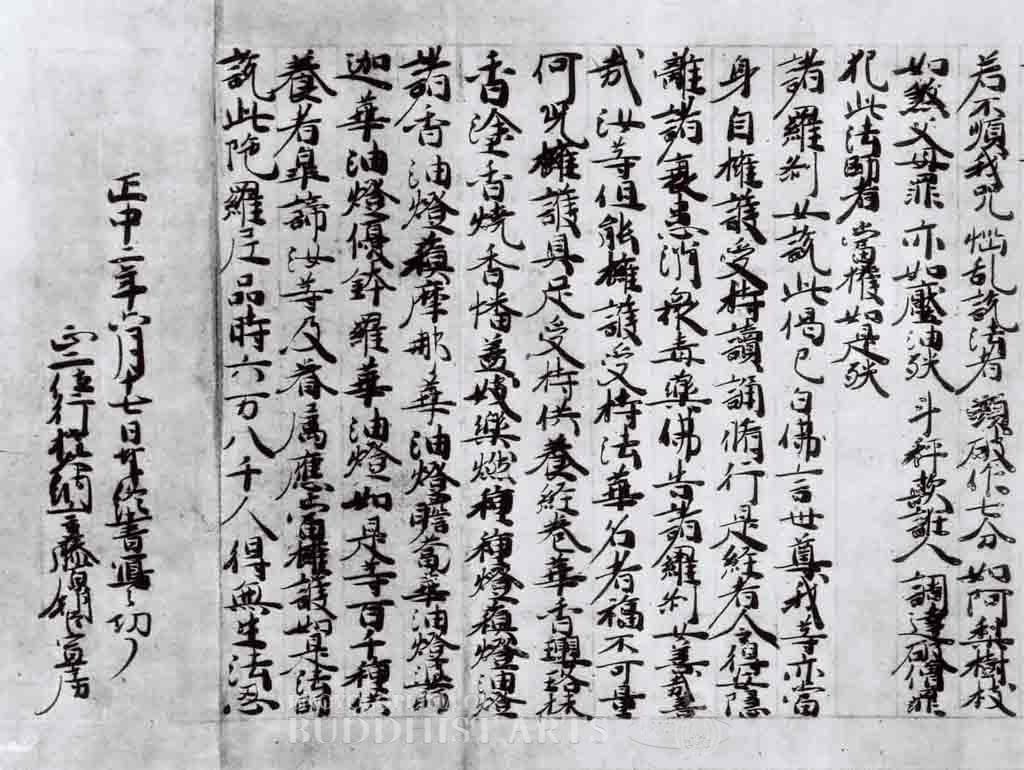 若不順我咒 惱乱說法者 頭破作七分 如阿梨樹枝
如殺父母罪 亦如壓油殃 斗秤欺誑人 調達破僧罪
犯此法師者 當獲如是殃
諸羅刹女說此偈已白佛言世尊我等亦當
身自擁護受持讀誦脩行是経者令得安隱
離諸衰患消衆毒藥佛告諸羅刹女善哉善
哉汝等但能擁護受持法華名者福不可量
何況擁護具足受持供養経巻華香瓔珞抹
香塗香燒香幡蓋妓樂燃種種燈蘓燈油燈
諸香油燈蘓摩那華油燈瞻蔔華油燈婆師
迦華油燈優鉢羅華油燈如是等百千種供
養者睾諦汝等及眷属應當擁護如是法師
說此陁羅尼品時六万八千人得無生法忍
正中二年六月十七日
正二位行権
BUDDHIST ARTS